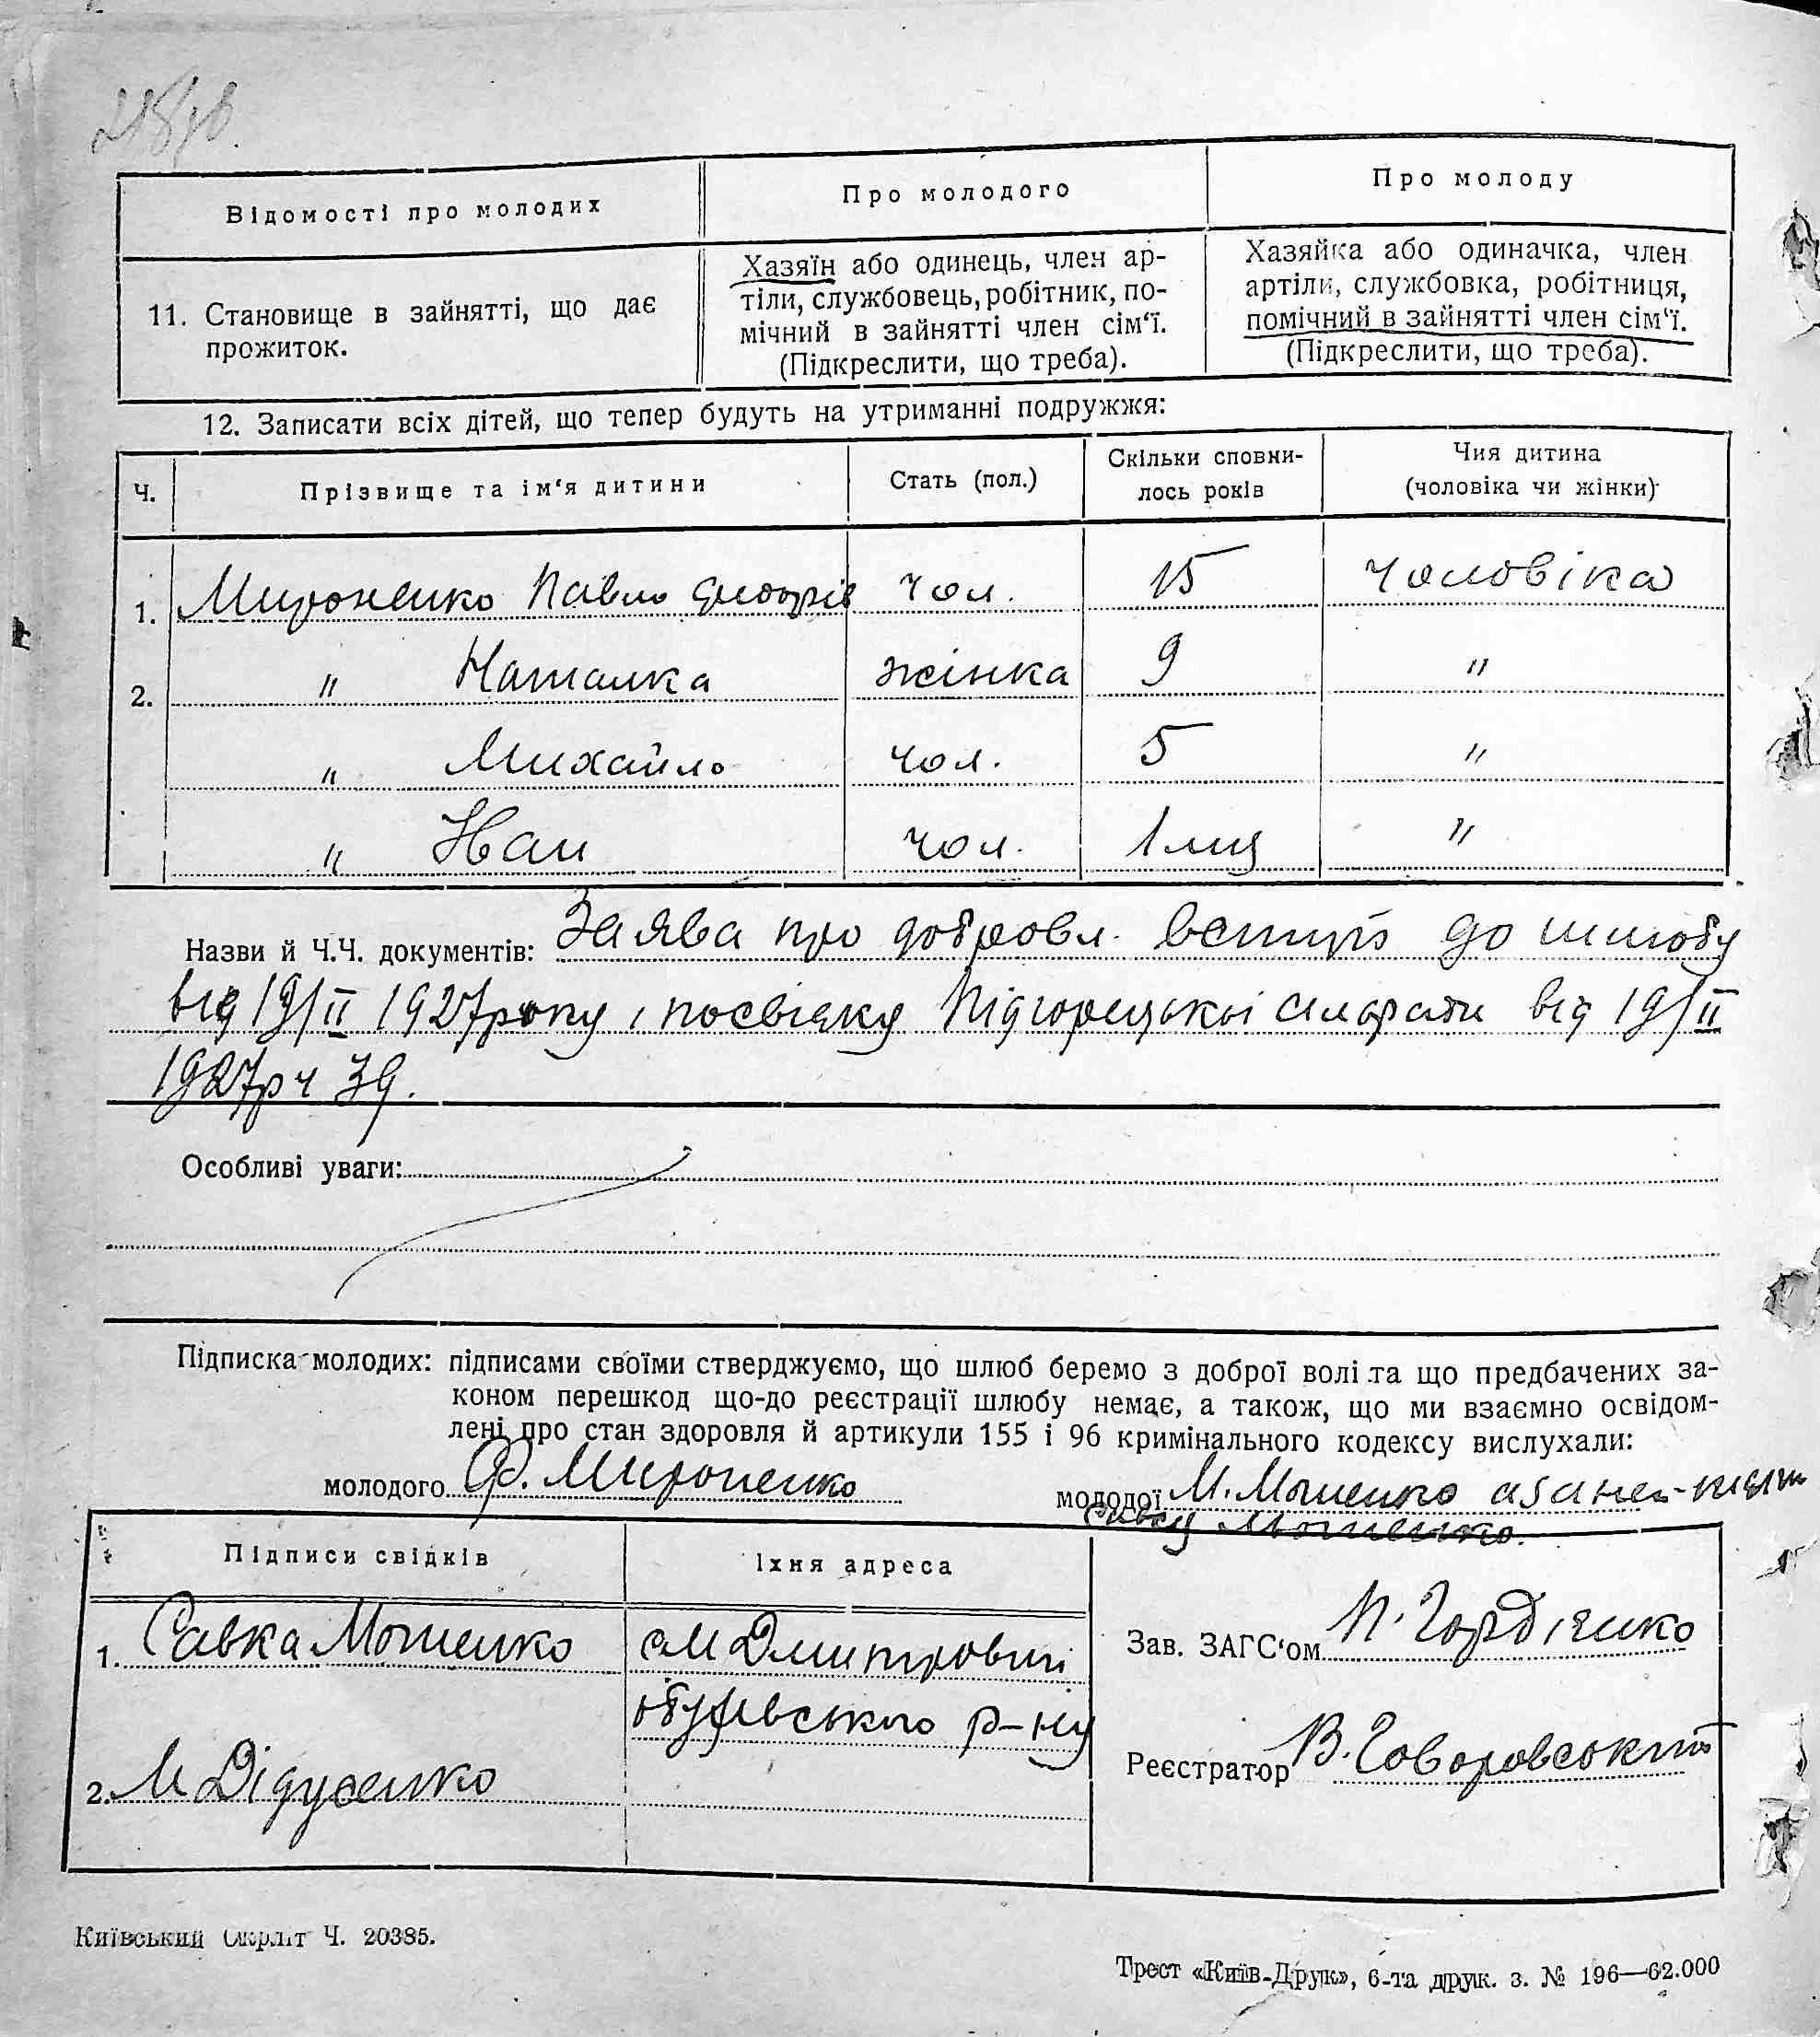 Відомості про молодих
Про молодого
Про молоду
11. Становище в зайнятті, що дає
прожиток.
Хазяїн або одинець, член ар-
тіли, службовець, робітник, по-
мічний в зайнятті член сім‘ї.
(Підкреслити, що треба).
Хазяйка або одиначка, член
артіли, службовка, робітниця,
помічний в зайнятті член сім‘ї.
(Підкреслити, що треба).
12. Записати всіх дітей, що тепер будуть на утриманні подружжя:
Ч.
Прізвище та ім‘я дитини
Стать (пол.)
Скільки сповни-
лось років
Чия дитина
(чоловіка чи жінки)
1. Мироненко Павло чол. 15 чоловіка
2. " Наталка жінка 9 "
" Михайло чол. 5 "
" Іван чол. 1 міс "
Назви й Ч.Ч. документів: Заява про добровл. вступ до шлюбу
від 19/II 1927 року і посвідку Підгорецької сільради від 19/II
1927 р ч 39.
Особливі уваги:
Підписка молодих: підписами своїми стверджуємо, що шлюб беремо з доброї волі та що предбачених за-
коном перешкод що-до реєстрації шлюбу немає, а також, що ми взаємно освідом-
лені про стан здоровля й артикули 155 і 96 кримінального кодексу вислухали:
молодого Ф. Мироненко
молодої М. Мошенко а за неї
Савка Мошенко.
Підписи свідків
Їхня адреса
1. Савка Мошенко
см Дмитровичі
Обухівського р-ну
2. М Дідусенко
Зав. ЗАГС‘ом П. Гордієнко
Реєстратор В. Говоровський
Київський Окрліт Ч. 20385.
Трест «Київ-Друк», 6-та друк. з. № 196—62.000